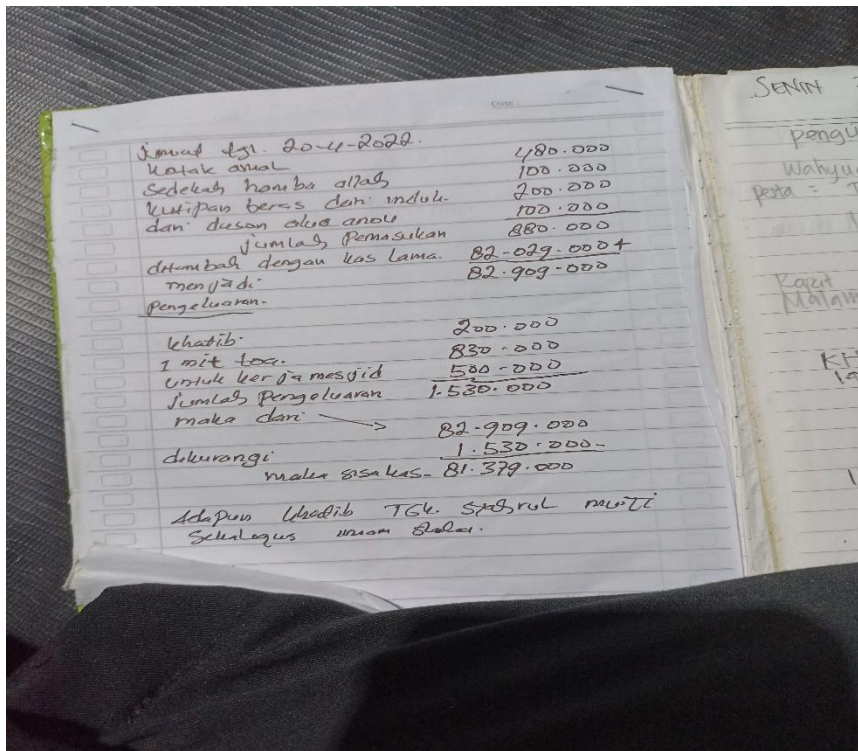 Jumat tgl. 20-4-2022.
Kotak amal 480.000
Sedekah hamba allah 100.000
kutipan beras dari induk. 200.000
dan dusun 100.000
jumlah Pemasukan 880.000
ditambah dengan kas lama. 82.029.000+
menjadi 82.909.000
Pengeluaran.
khatib. 200.000
1 mit toa. 830.000
untuk kerja mesjid 500.000
jumlah Pengeluaran 1.530.000
maka dari 82.909.000
dikurangi 1.530.000-
maka sisa kas- 81.379.000
Adapun khatib TGk. Sahrul
Sekalogus imam
SENIN
pengu
Wahyu
pesta =
Malam
KH